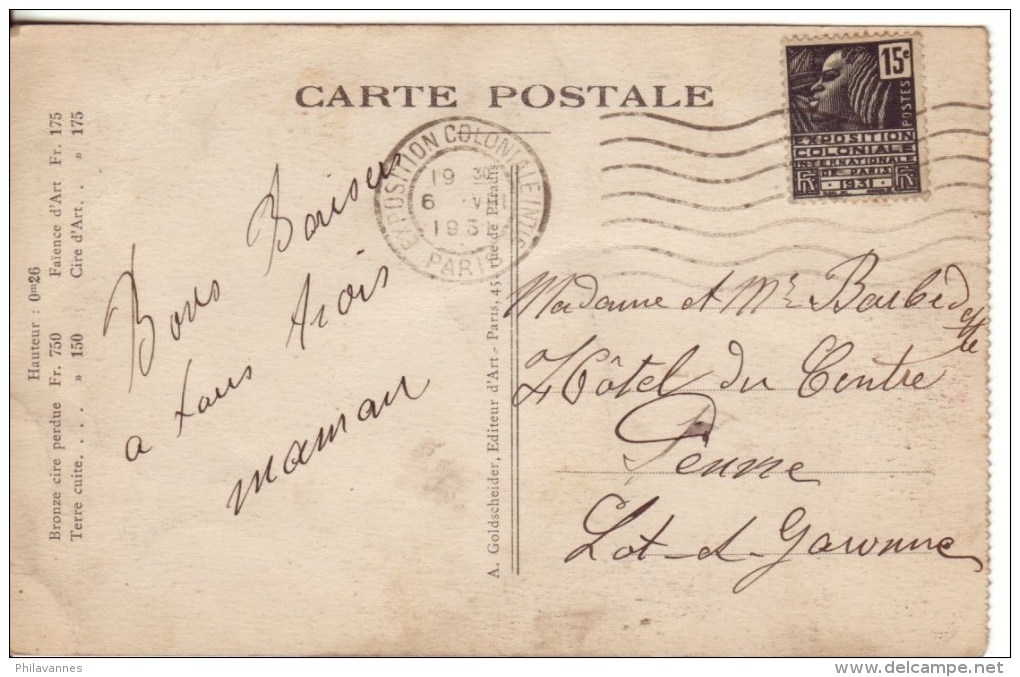 CARTE POSTALE
15c
POSTES
EXPOSITION
COLONIALE
INTERNATIONALE
DE PARIS
1931
RF RF
EXPOSITION COLONIALE INTLE
19 30
6 VII
1931
PARIS
Hauteur : 0m26
Bronze cire perdue Fr. 750 Faïence d'Art Fr. 175
Terre cuite. . . . » 150 Cire d'Art. . » 175
Bons Baisers
a tous trois
maman
A. Goldscheider, Editeur d'Art - Paris, 45, rue de Paradis
Madame et Mr Barbedette
Hôtel du Centre
Penne
Lot-et-Garonne
Philavannes
delcampe.net